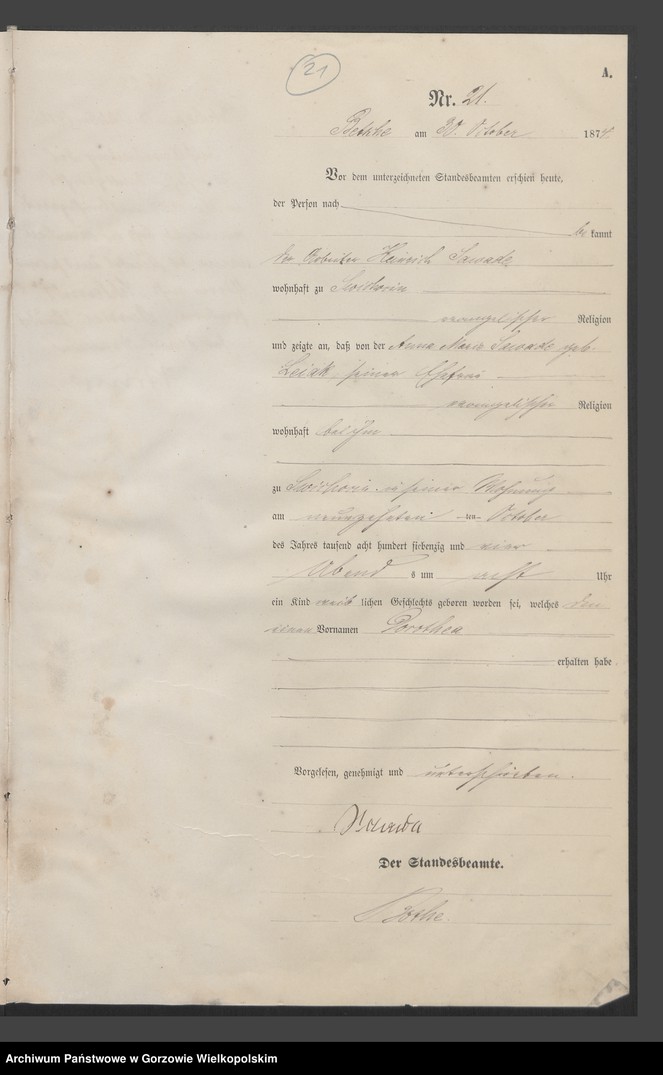 21
A.
Nr. 21.
am 20. October 1874.
Vor dem unterzeichneten Standesbeamten erschien heute,
der Person nach
be kannt
der Arbeiter Heinrich Sawade
wohnhaft zu
evangelischer Religion
und zeigte an, daß von der Anna Marie Sawade geb.
seiner Ehefrau
evangelischer Religion
wohnhaft bei ihm
zu in seiner Wohnung
am neunzehnten ten October
des Jahres tausend acht hundert siebenzig und vier
Abend s um acht Uhr
ein Kind weib lichen Geschlechts geboren worden sei, welches den
einen Vornamen Dorothea
erhalten habe
Vorgelesen, genehmigt und unterschrieben.
Der Standesbeamte.
Archiwum Państwowe w Gorzowie Wielkopolskim